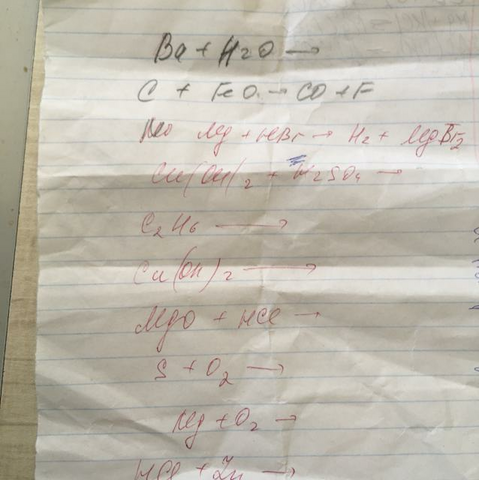 Ba + H2O →
C + FeO → CO + F
Mg + HBr → H2 + MgBr2
Cu(OH)2 + H2SO4 →
C2H6 →
Cu(OH)2 →
MgO + HCl →
S + O2 →
Mg + O2 →
HCl + Zn →